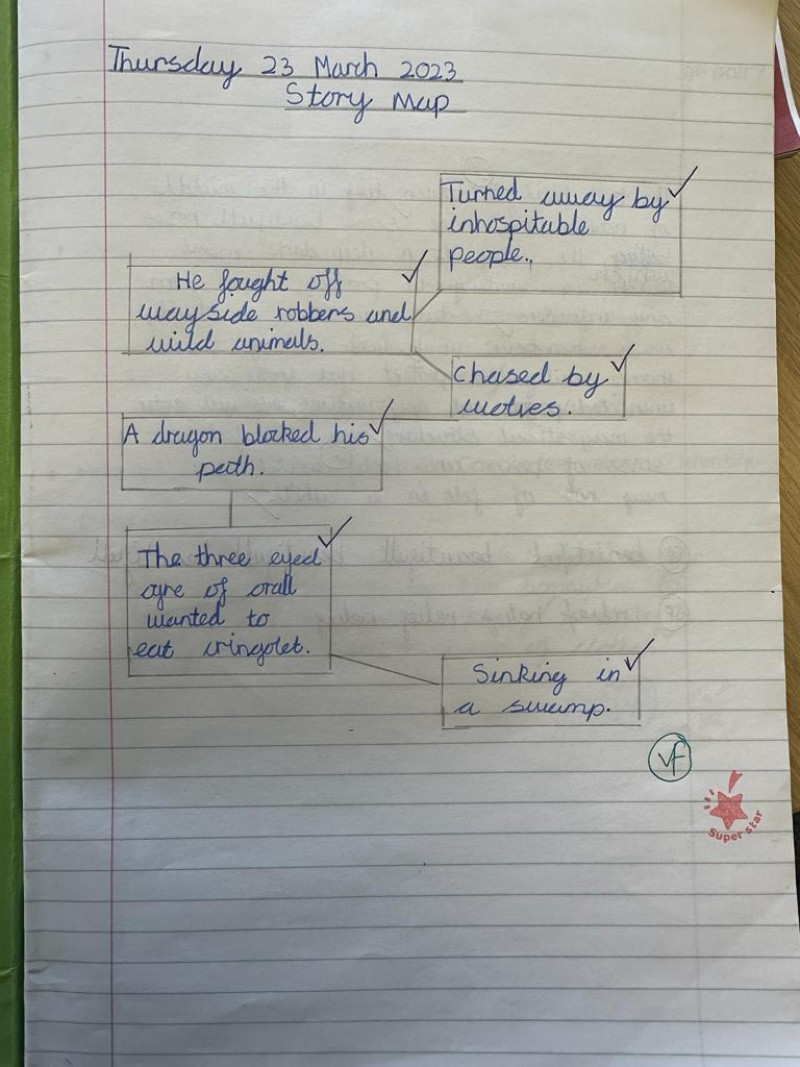 Thursday 23 March 2023
Story Map
Turned away by
inhospitable
people.
He fought off
wayside robbers and
wild animals.
Chased by
wolves.
A dragon blocked his
path.
The three eyed
ogre of orall
wanted to
eat cringolet.
Sinking in
a swamp.
vf
Super star